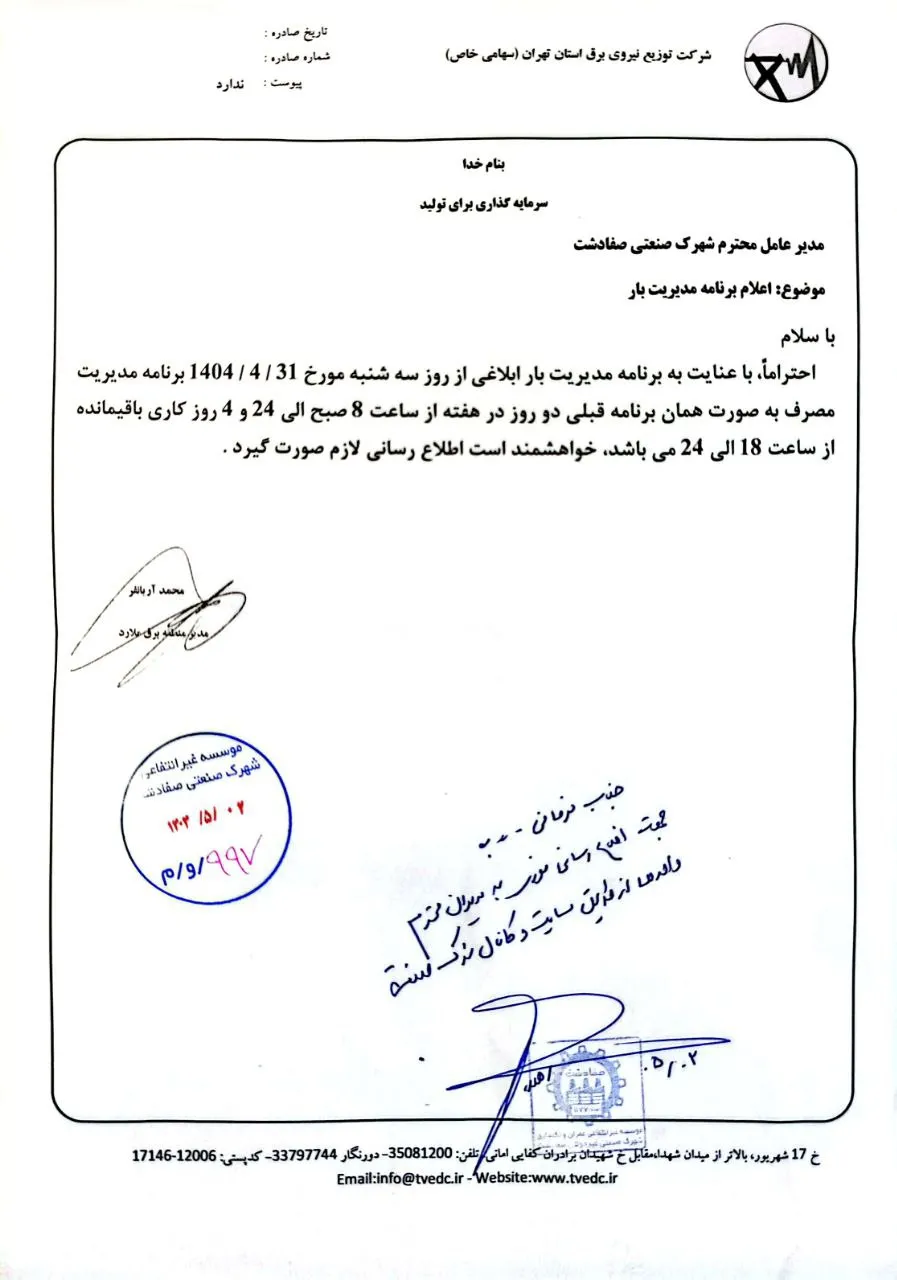 شرکت توزیع نیروی برق استان تهران (سهامی خاص)
تاریخ صادره :
شماره صادره :
پیوست : ندارد
بنام خدا
سرمایه گذاری برای تولید
مدیر عامل محترم شهرک صنعتی صفادشت
موضوع: اعلام برنامه مدیریت بار
با سلام
احتراماً، با عنایت به برنامه مدیریت بار ابلاغی از روز سه شنبه مورخ 31 / 4 / 1404 برنامه مدیریت
مصرف به صورت همان برنامه قبلی دو روز در هفته از ساعت 8 صبح الی 24 و 4 روز کاری باقیمانده
از ساعت 18 الی 24 می باشد، خواهشمند است اطلاع رسانی لازم صورت گیرد .
محمد آریانفر
مدیر منطقه برق ملارد
موسسه غیر انتفاعی
شهرک صنعتی صفادشت
۱۴۰۴ /۵/ ۰۲
م/و/۹۹۷
جناب
جهت اطلاع رسانی فوری به مدیران محترم
واحدها از طریق سایت و کانال شهرک صنعتی
۵/۰۲
صفادشت
خ 17 شهریور، بالاتر از میدان شهداء،مقابل خ شهیدان برادران کفایی امانی، تلفن: 35081200– دورنگار 33797744– کدپستی: 12006-17146
Email:info@tvedc.ir - Website:www.tvedc.ir